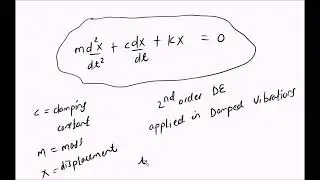 md²x/dt² + cdx/dt + kx = 0
c = damping constant
m = mass
x = displacement
2nd order DE
applied in Damped Vibrations